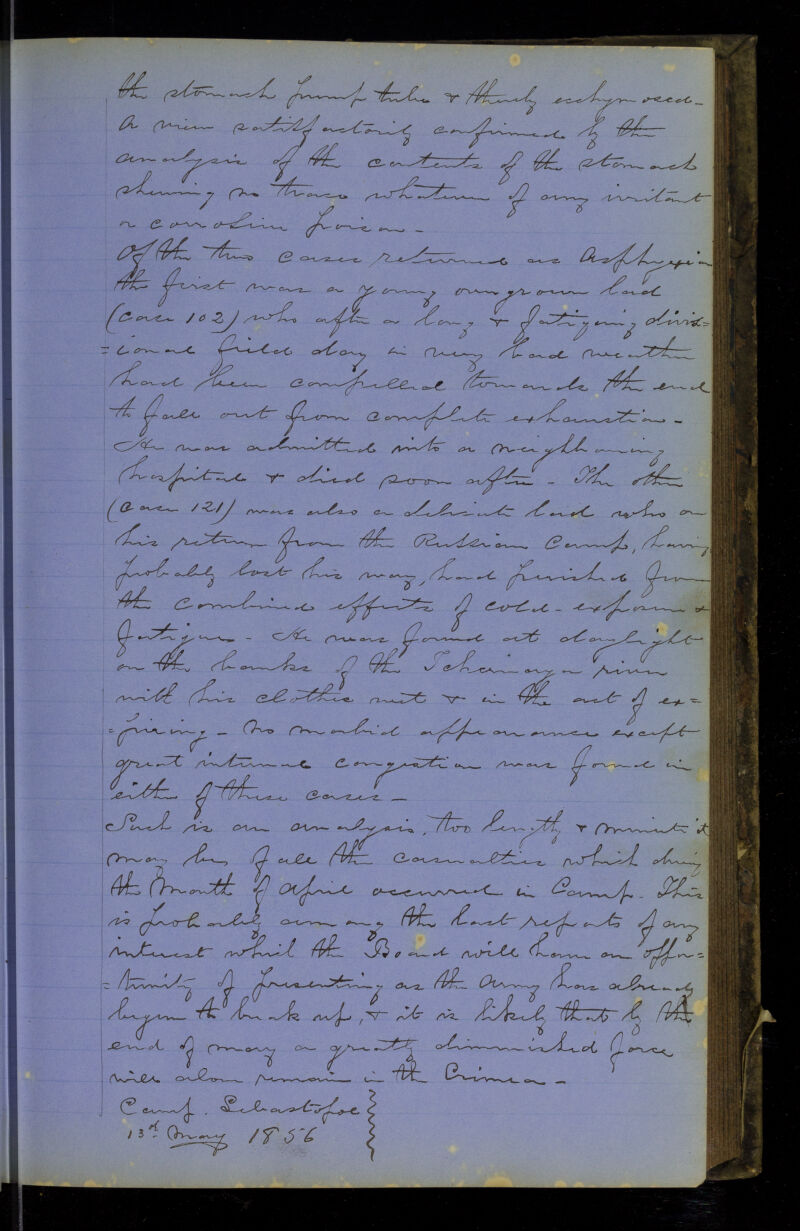 the stomach pump tube & thereby ecchymosed-
a view satisfactorily confirmed by the
analysis of the contents of the stomach
shewing no trace whatever of any irritant
or corrosive poison -
Of the two cases returned as Asphyxia
the first was a young overgrown lad
(case 102) who after a long & fatiguing divis=
=ional field day in very bad weather
had been compelled towards the end
to fall out from complete exhaustion -
He was admitted into a neighbouring
hospital & died soon after - The other
(case 121) was also a delicate lad who on
his return from the Russian Camp, having
probably lost his way, had perished from
the combined effects of cold - exposure &
fatigue - He was found at daylight
on the banks of the Tchernaya river
with his clothes wet & in the act of ex=
=piring - No morbid appearance except
great internal congestion was found in
either of these cases -
Such is an analysis, too lengthy & minute it
may be, of all the casualties which during
the Month of April occurred in Camp. This
is probably among the last reports of any
interest which the Board will have an oppor=
=tunity of presenting as the Army has already
begun to break up, & it is likely that by the
end of may a greatly diminished force
will alone remain in the Crimea -
Camp. Sebastopol
13th May 1856